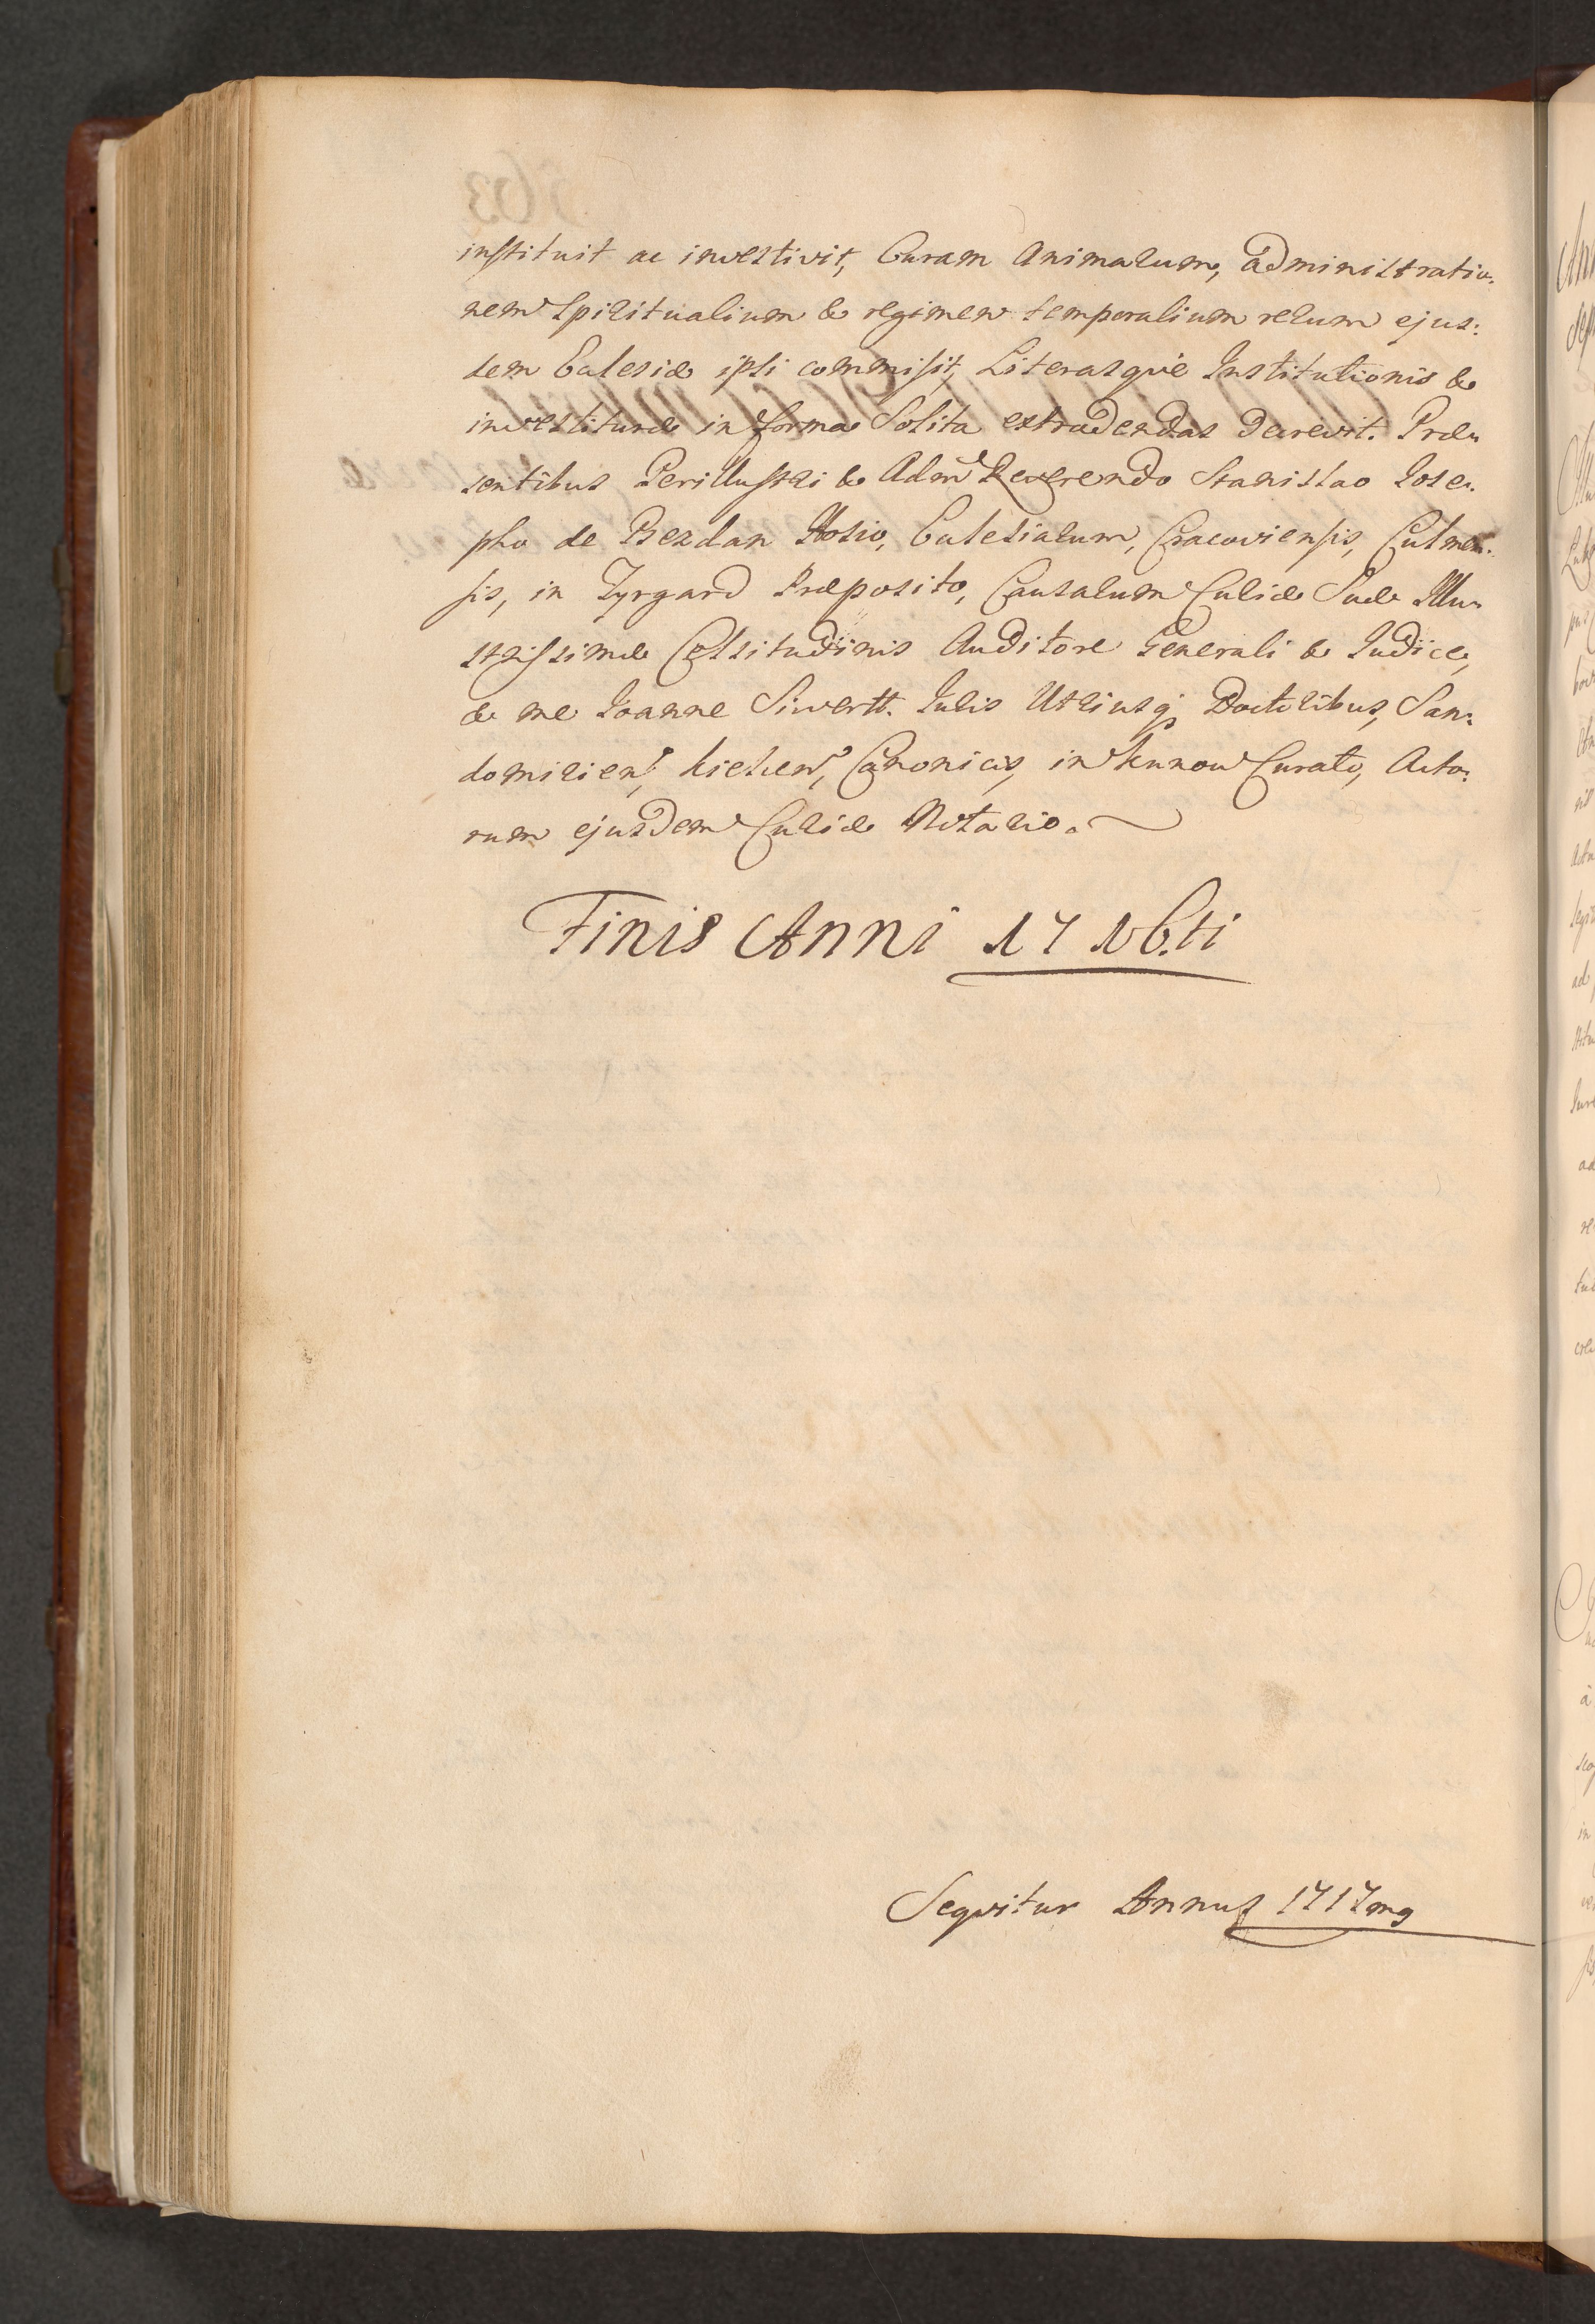 instituit ac investivit, Curam Animarum, administratio-
nem Spiritualium & regimen temporalium rerum ejus-
dem Ecclesiæ ipsi commisit, Literasque Institutionis &
investituræ in forma Solita extradendas decrevit. Præ-
sentibus Perillustri & Adm Reverendo Stanislao Jose-
pho de Bezdan Hosio, Ecclesiarum, Cracoviensis, Culmen-
sis, in Tyrgard Præposito, Causarum Curiæ Suæ Illu-
strissimæ Celsitudinis Auditore Generali & Judice,
& me Joanne Sivertt. Juris Utriusq Doctoribus, San-
domirien, Kielcen, Canonicis, in Kunow Curato, Acto-
rum ejusdem Curiæ Notario.
Finis Anni 1716.ti
Sequitur Annus 1717mg